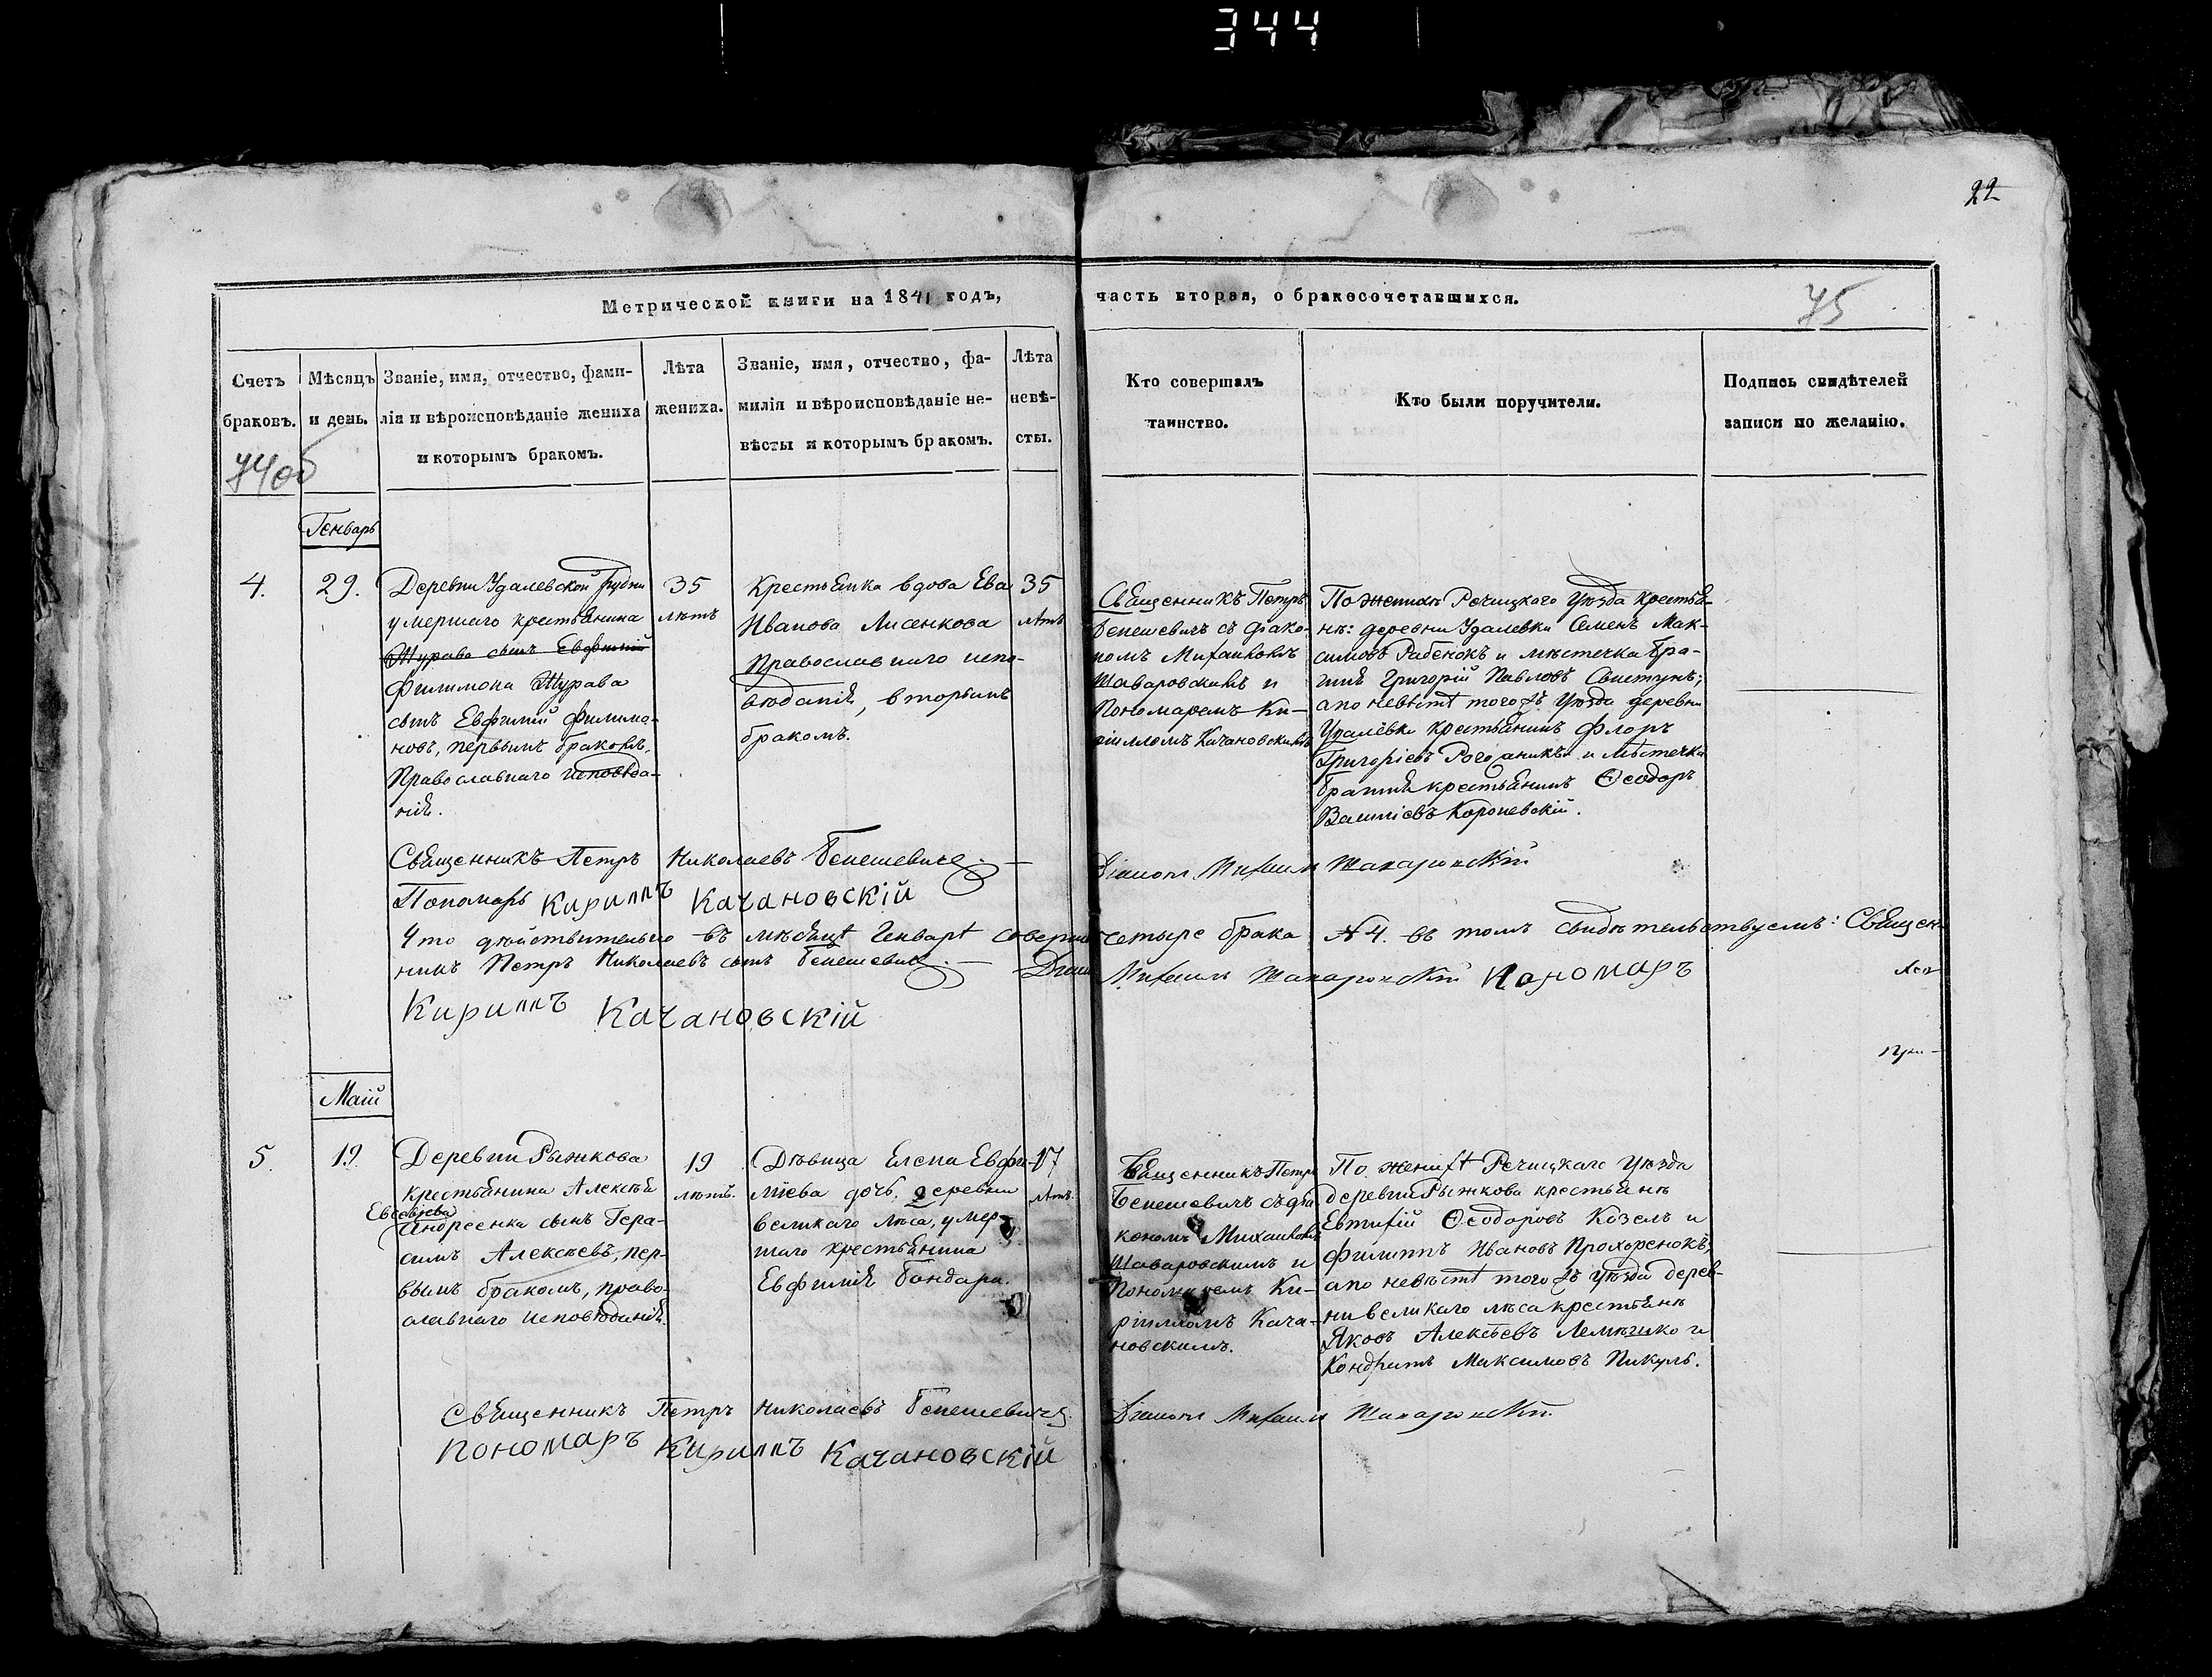 344
22
Метрической книги на 1841 годъ,
часть вторая, о бракосочетавшихся.
75
Счетъ
браковъ.
74об
Мѣсяцъ
и день.
Званіе, имя, отчество, фами-
лія и вѣроисповѣданіе жениха
и которымъ бракомъ.
Лѣта
жениха.
Званіе, имя, отчество, фа-
милія и вѣроисповѣданіе не-
вѣсты и которымъ бракомъ.
Лѣта
невѣ-
сты.
Кто совершалъ
таинство.
Кто были поручители.
Подпись свидѣтелей
записи по желанію.
Генварь
4.
29.
Деревни Удалевской Рудни
умершаго крестьянина
Журава сынъ Евфимій
Филимона Журава
сынъ Евфимій Филимо-
новъ, первымъ бракомъ,
Православнаго исповѣда-
нія.
35
лѣтъ
Крестьянка вдова Ева
Иванова Лисенкова
Православнаго испо-
вѣданія, вторымъ
бракомъ.
35
лѣтъ
Священникъ Петръ
Бенешевичъ съ діако-
номъ Михаиломъ
Шаваровскимъ и
Пономаремъ Ки-
рилломъ Качановскимъ
По женихѣ Речицкаго Уѣзда крестья-
нѣ: деревни Удалевки Семенъ Мак-
симовъ Рабенокъ и мѣстечка Бра-
гинѣ Григорій Павловъ Свистунъ;
а по невѣстѣ того жъ Уѣзда деревни
Удалёвки крестьянинъ Флоръ
Григоріевъ и мѣстечка
Брагинѣ крестьянинъ Ѳеодоръ
Василіевъ Короневскій.
Священникъ Петръ Николаевъ Бенешевичъ.
Діаконъ Михаилъ Шаваровскій
Пономарь Кириллъ Качановскій
Что дѣйствительно въ мѣсяцѣ Генварѣ соверше четыре брака №4. въ томъ свидѣтельствуемъ: Священ-
никъ Петръ Николаевъ сынъ Бенешевичъ. Діаконъ Михаилъ Шаваровскій Пономаръ
Кириллъ Качановскій
Маій
5.
19.
Деревни Рыжкова
крестьянина Алексѣя
Евсевіева
Андреенка сынъ Гера-
симъ Алексѣевъ, пер-
вымъ бракомъ, право-
славнаго исповѣданія.
19
лѣтъ.
Дѣвица Елена Евфи-
міева дочь, деревни
Великаго лѣса, умер-
шаго крестьянина
Евфимія Бондара.
17
лѣтъ
Священникъ Петръ
Бенешевичъ съ діа
кономъ Михаиломъ
Шаваровскимъ и
Пономаремъ Ки-
рилломъ Кача-
новскимъ.
По женихѣ Речицкаго Уѣзда
деревни Рыжкова крестьянѣ
Евтихій Ѳеодоровъ Козелъ и
Филиппъ Ивановъ Прохоренокъ,
а по невѣстѣ того жъ Уѣзда дерев-
ни великаго лѣса крестьянѣ
Яковъ Алексѣевъ Лемѣшко и
Кондратъ Максимовъ Пикуль.
Священникъ Петръ Николаевъ Бенешевичъ.
Діаконъ Михаилъ Шаваровскій.
Пономаръ Кириллъ Качановскій